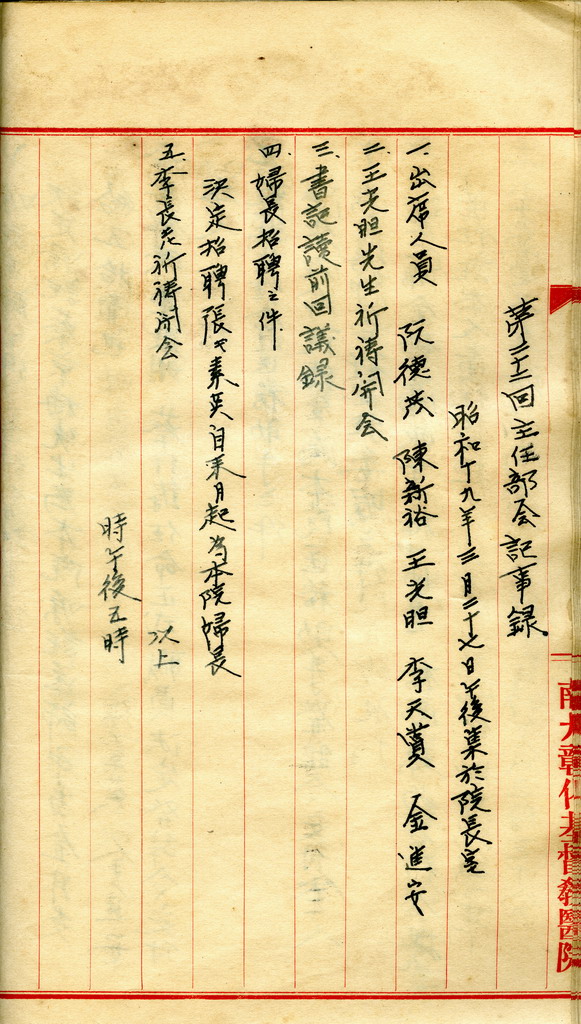 第三十三回主任部会記事録
昭和十九年三月二十七日午後集於院長室
一、出席人員 阮德茂 陳新裕 王光胆 李天賛 金進安
二、王光胆先生祈禱開会
三、書記讀前回議録
四、婦長招聘之件
決定招聘張氏素英自来月起為本院婦長
五、李長老祈禱閉会
以上
時午後五時
彰化基督教醫院